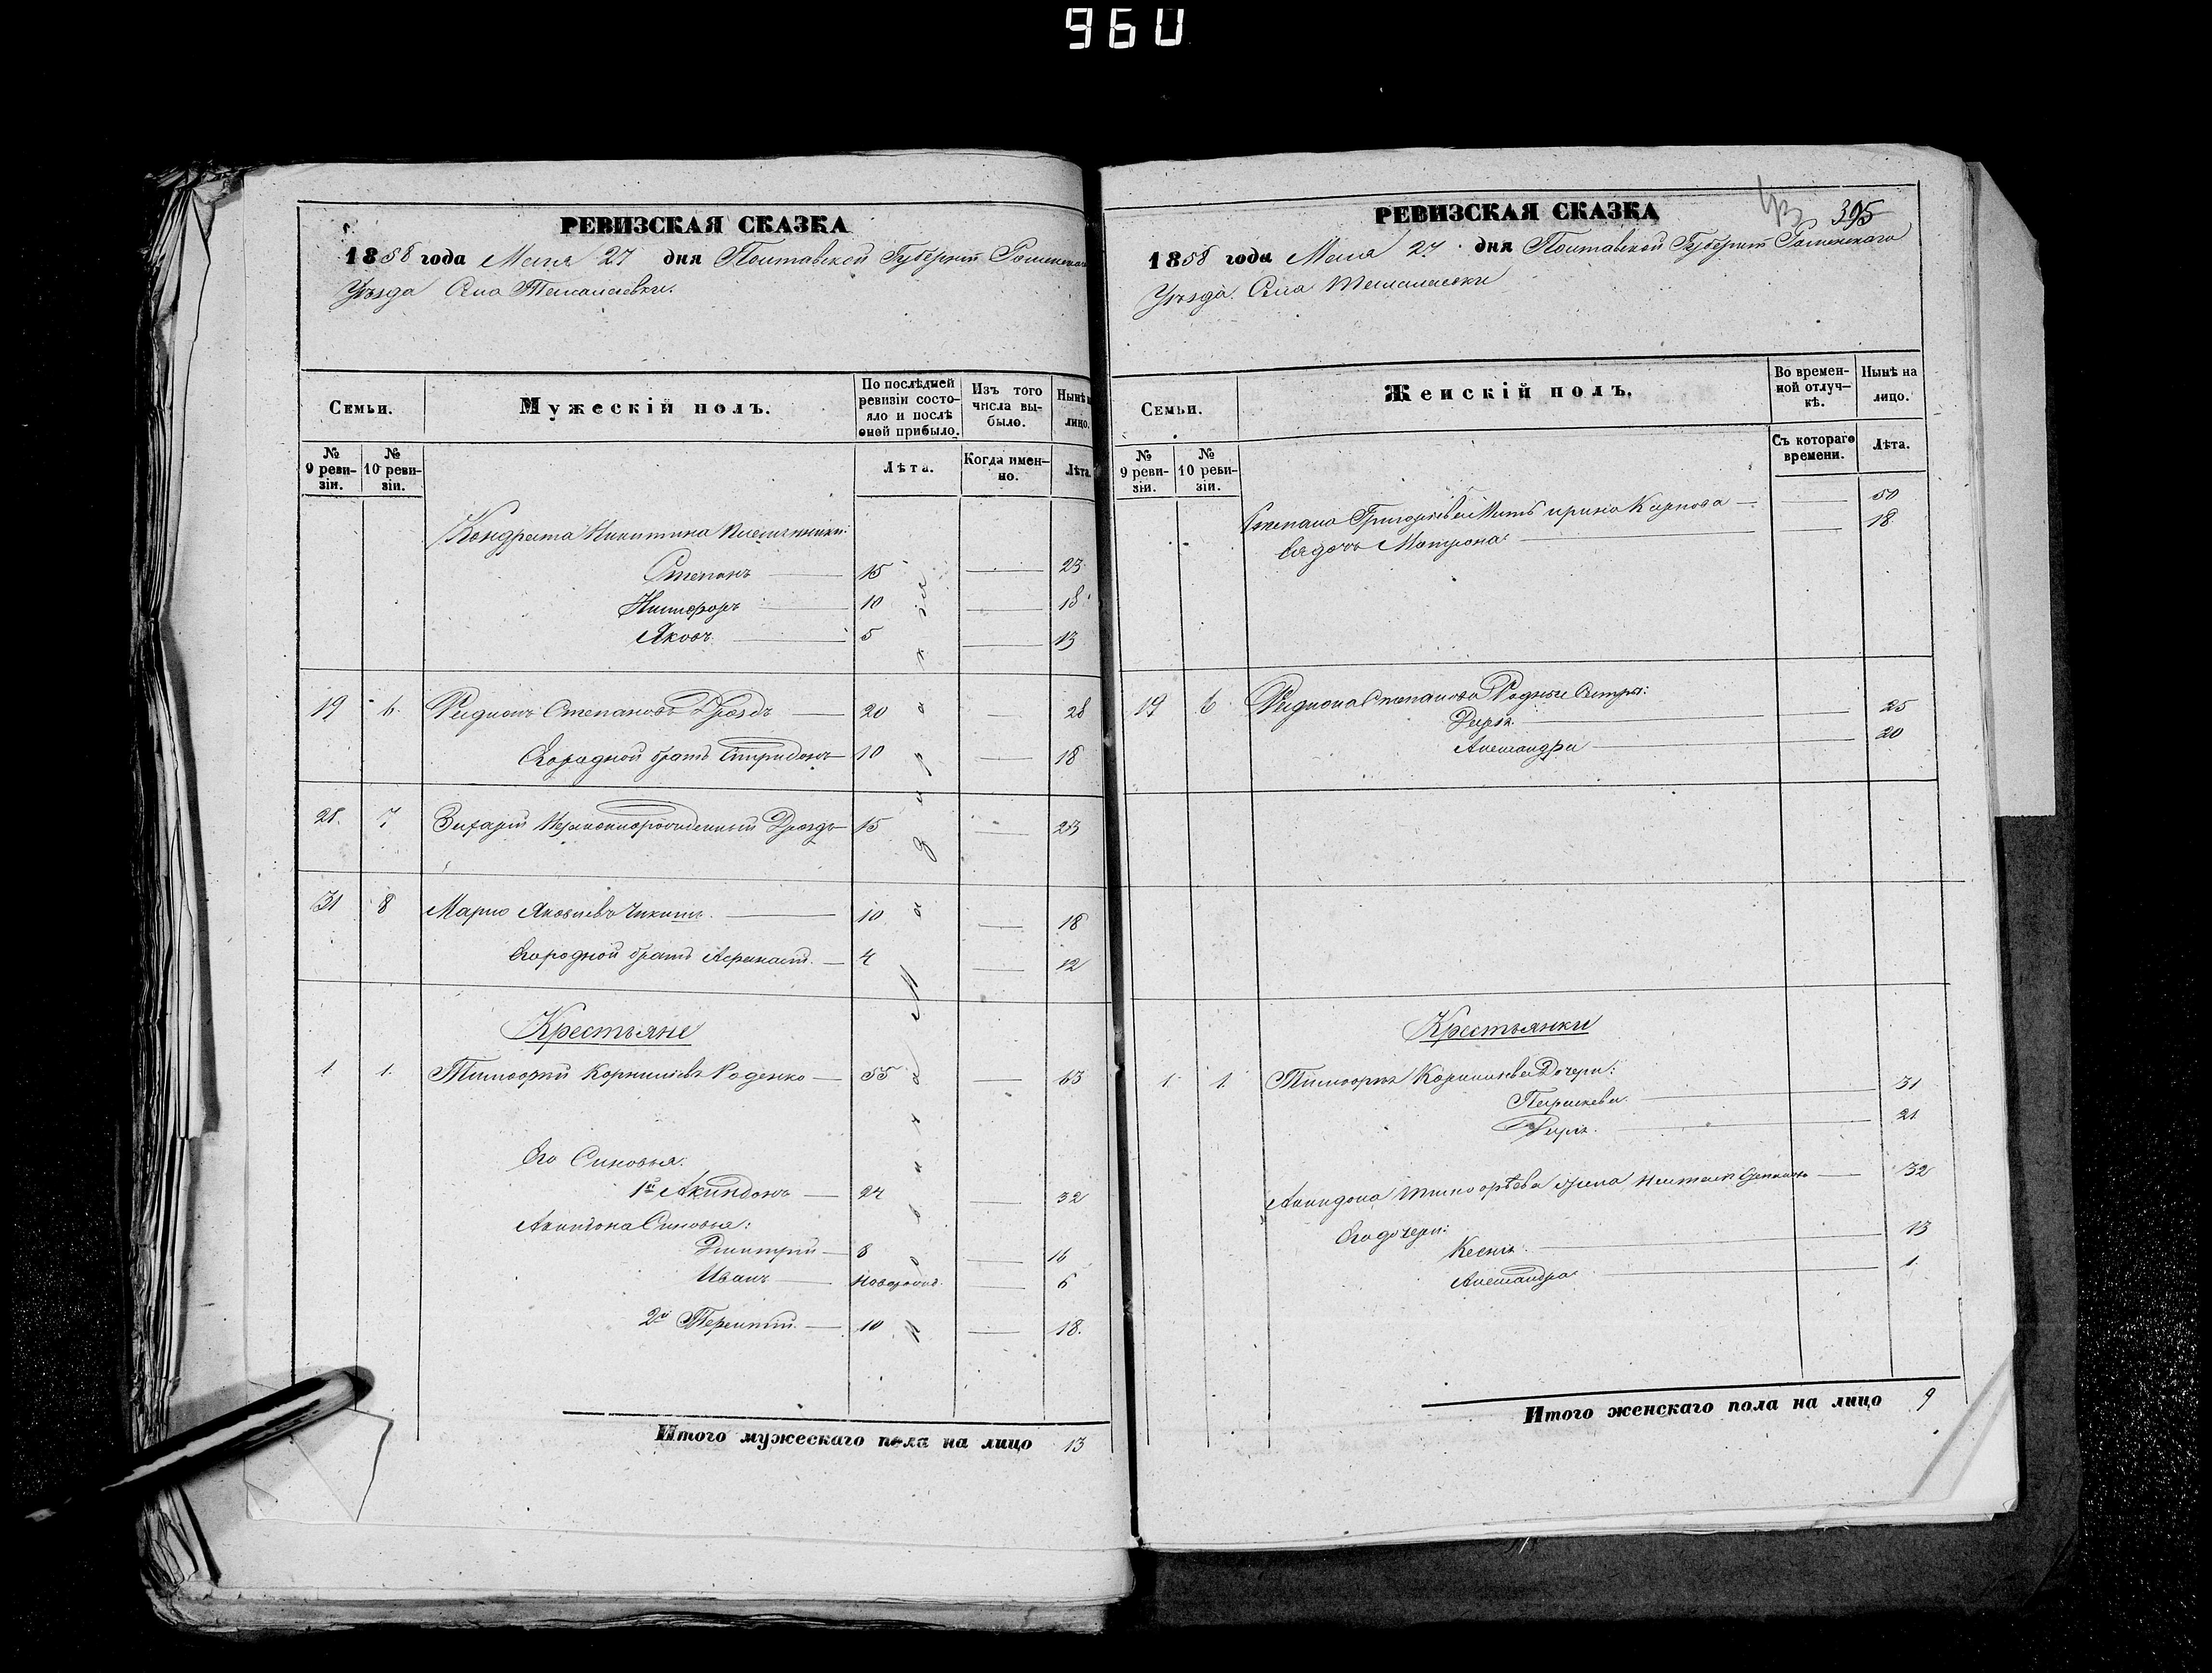 960
РЕВИЗСКАЯ СКАЗКА
1858 года Мая 27 дня Полтавской Губерніи Роменскаго
Уѣзда Села
Семьи.
Мужескій полъ.
По послѣдней ревизіи состояло и послѣ оной прибыло.
Изъ того числа выбыло.
Нынѣ на лицо.
№ 9 ревизіи.
№ 10 ревизіи.
Лѣта.
Когда именно.
Лѣта.
Кондрата Никитина племянники:
Степанъ 15 23
Никифоръ 10 18
Яковъ 5 13
19 6 Родионъ Степановъ Дроздъ 20 28
Его родной братъ Спиридонъ 10 18
28. 7 Захарій Незаконнорожденный Дроздъ 15 23
31 8 Марко Яковлевъ 10 18
Его родной братъ Афанасій 4 12
Крестьяне
1 1. Тимофей Корниліевъ Роденко 55 63
Его Сыновья:
1й Акиндинъ 24 32
Акиндина Сыновья:
Дмитрій 8 16
Иванъ новорожд. 6
2й Терентій 10 18.
Итого мужескаго пола на лицо 13
РЕВИЗСКАЯ СКАЗКА
395
1858 года Мая 27 дня Полтавской Губерніи Роменскаго
Уѣзда Села
Семьи.
Женскій полъ.
Во временной отлучкѣ.
Нынѣ на лицо.
№ 9 ревизіи.
№ 10 ревизіи.
Съ котораго времени.
Лѣта.
Степана Григорьева Мать Ирина Карпова 50
Ея дочь Матрона 18
19 6 Родиона Степанова Родные Сестры:
Дарья 25
Александра 20
Крестьянки
1. 1. Тимофея Корнилиева Дочери:
Параскева 31
Дарья 21
Акиндина Тимофѣева жена 32
Его дочери:
Ксенія 13
Александра 1
Итого женскаго пола на лицо 9